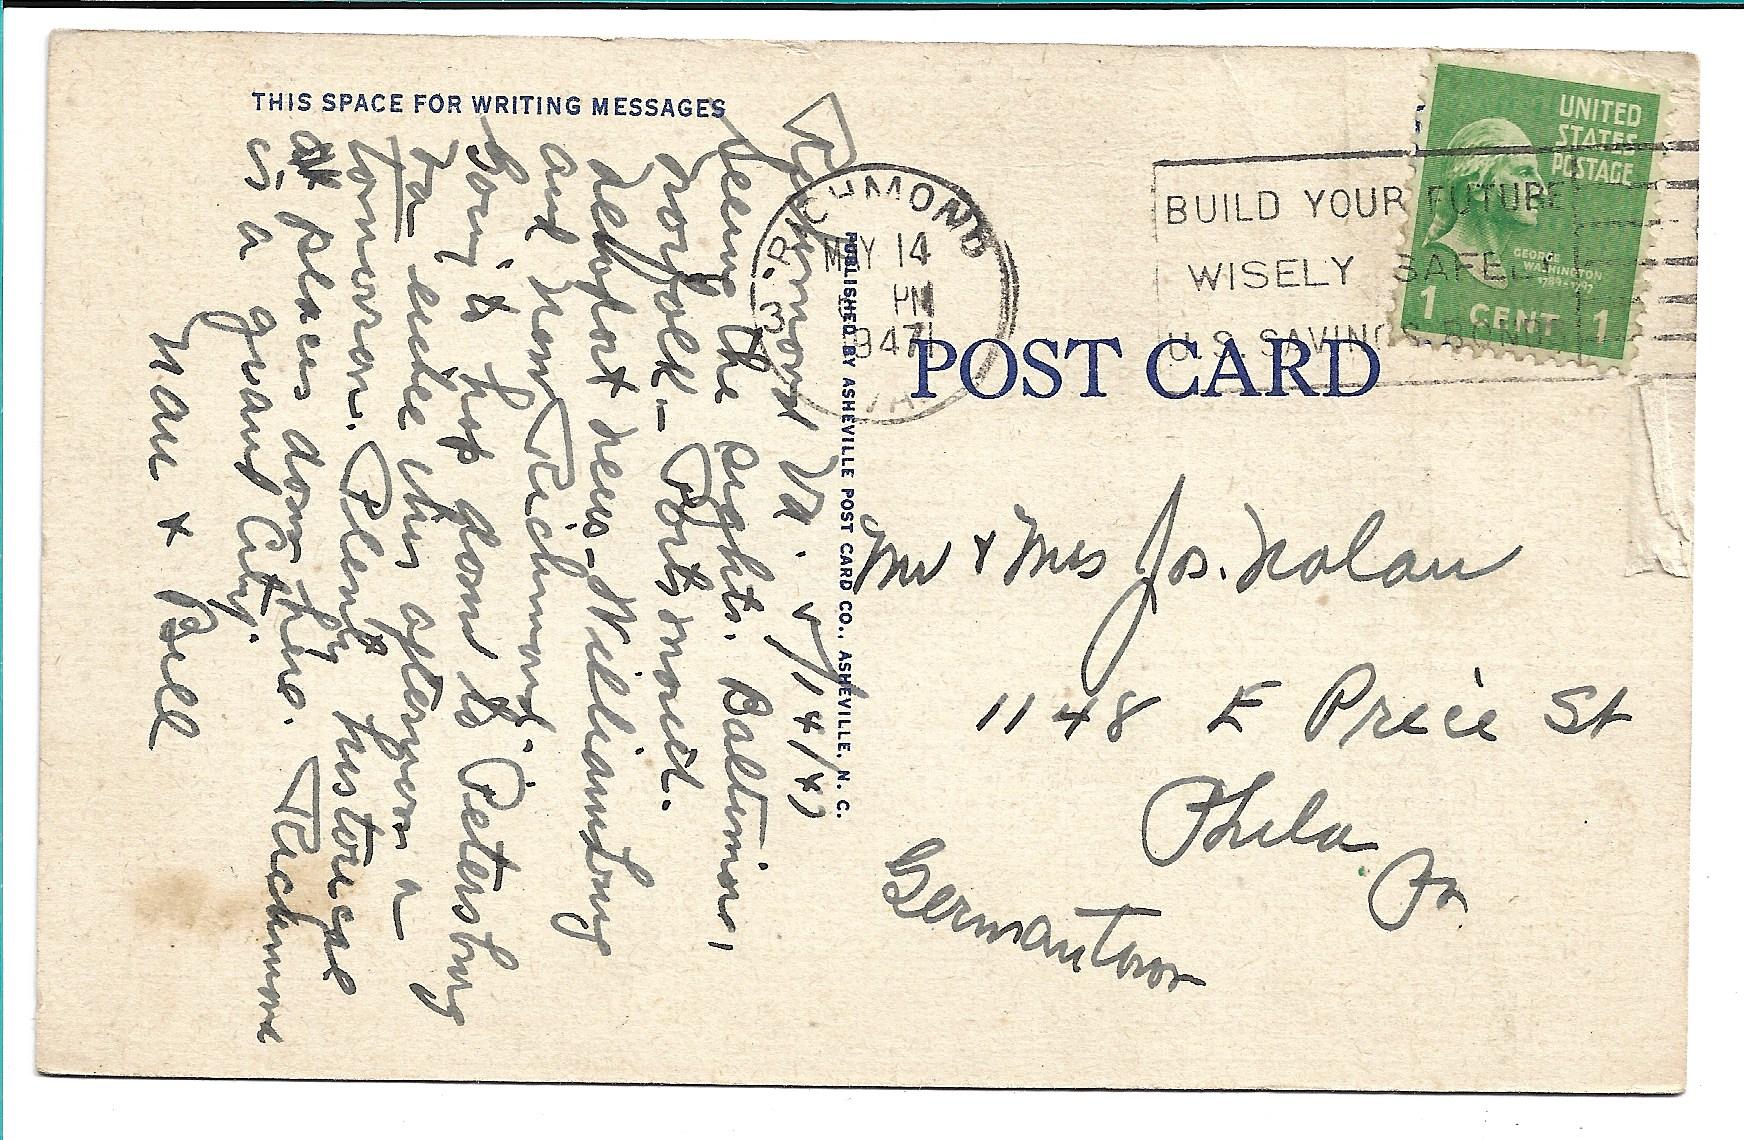 THIS SPACE FOR WRITING MESSAGES
Richmond Va. 5/14/47
Seeing the sights. Baltimore,
Norfolk - Portsmouth.
Newport News - Williamsburg
and now Richmond.
Going to hop down to Petersburg
Va either this afternoon or
tomorrow. Plenty historical
places down here. Richmond
is a grand City.
Nan & Bill
PUBLISHED BY ASHEVILLE POST CARD CO., ASHEVILLE, N. C.
RICHMOND
MAY 14
PM
1947
VA.
BUILD YOUR FUTURE
WISELY SAFELY
U.S. SAVINGS BONDS
UNITED
STATES
POSTAGE
GEORGE
WASHINGTON
1789-1797
1 CENT 1
POST CARD
Mr & Mrs Jos. Nolan
1148 E Price St
Phila Pa
Germantown